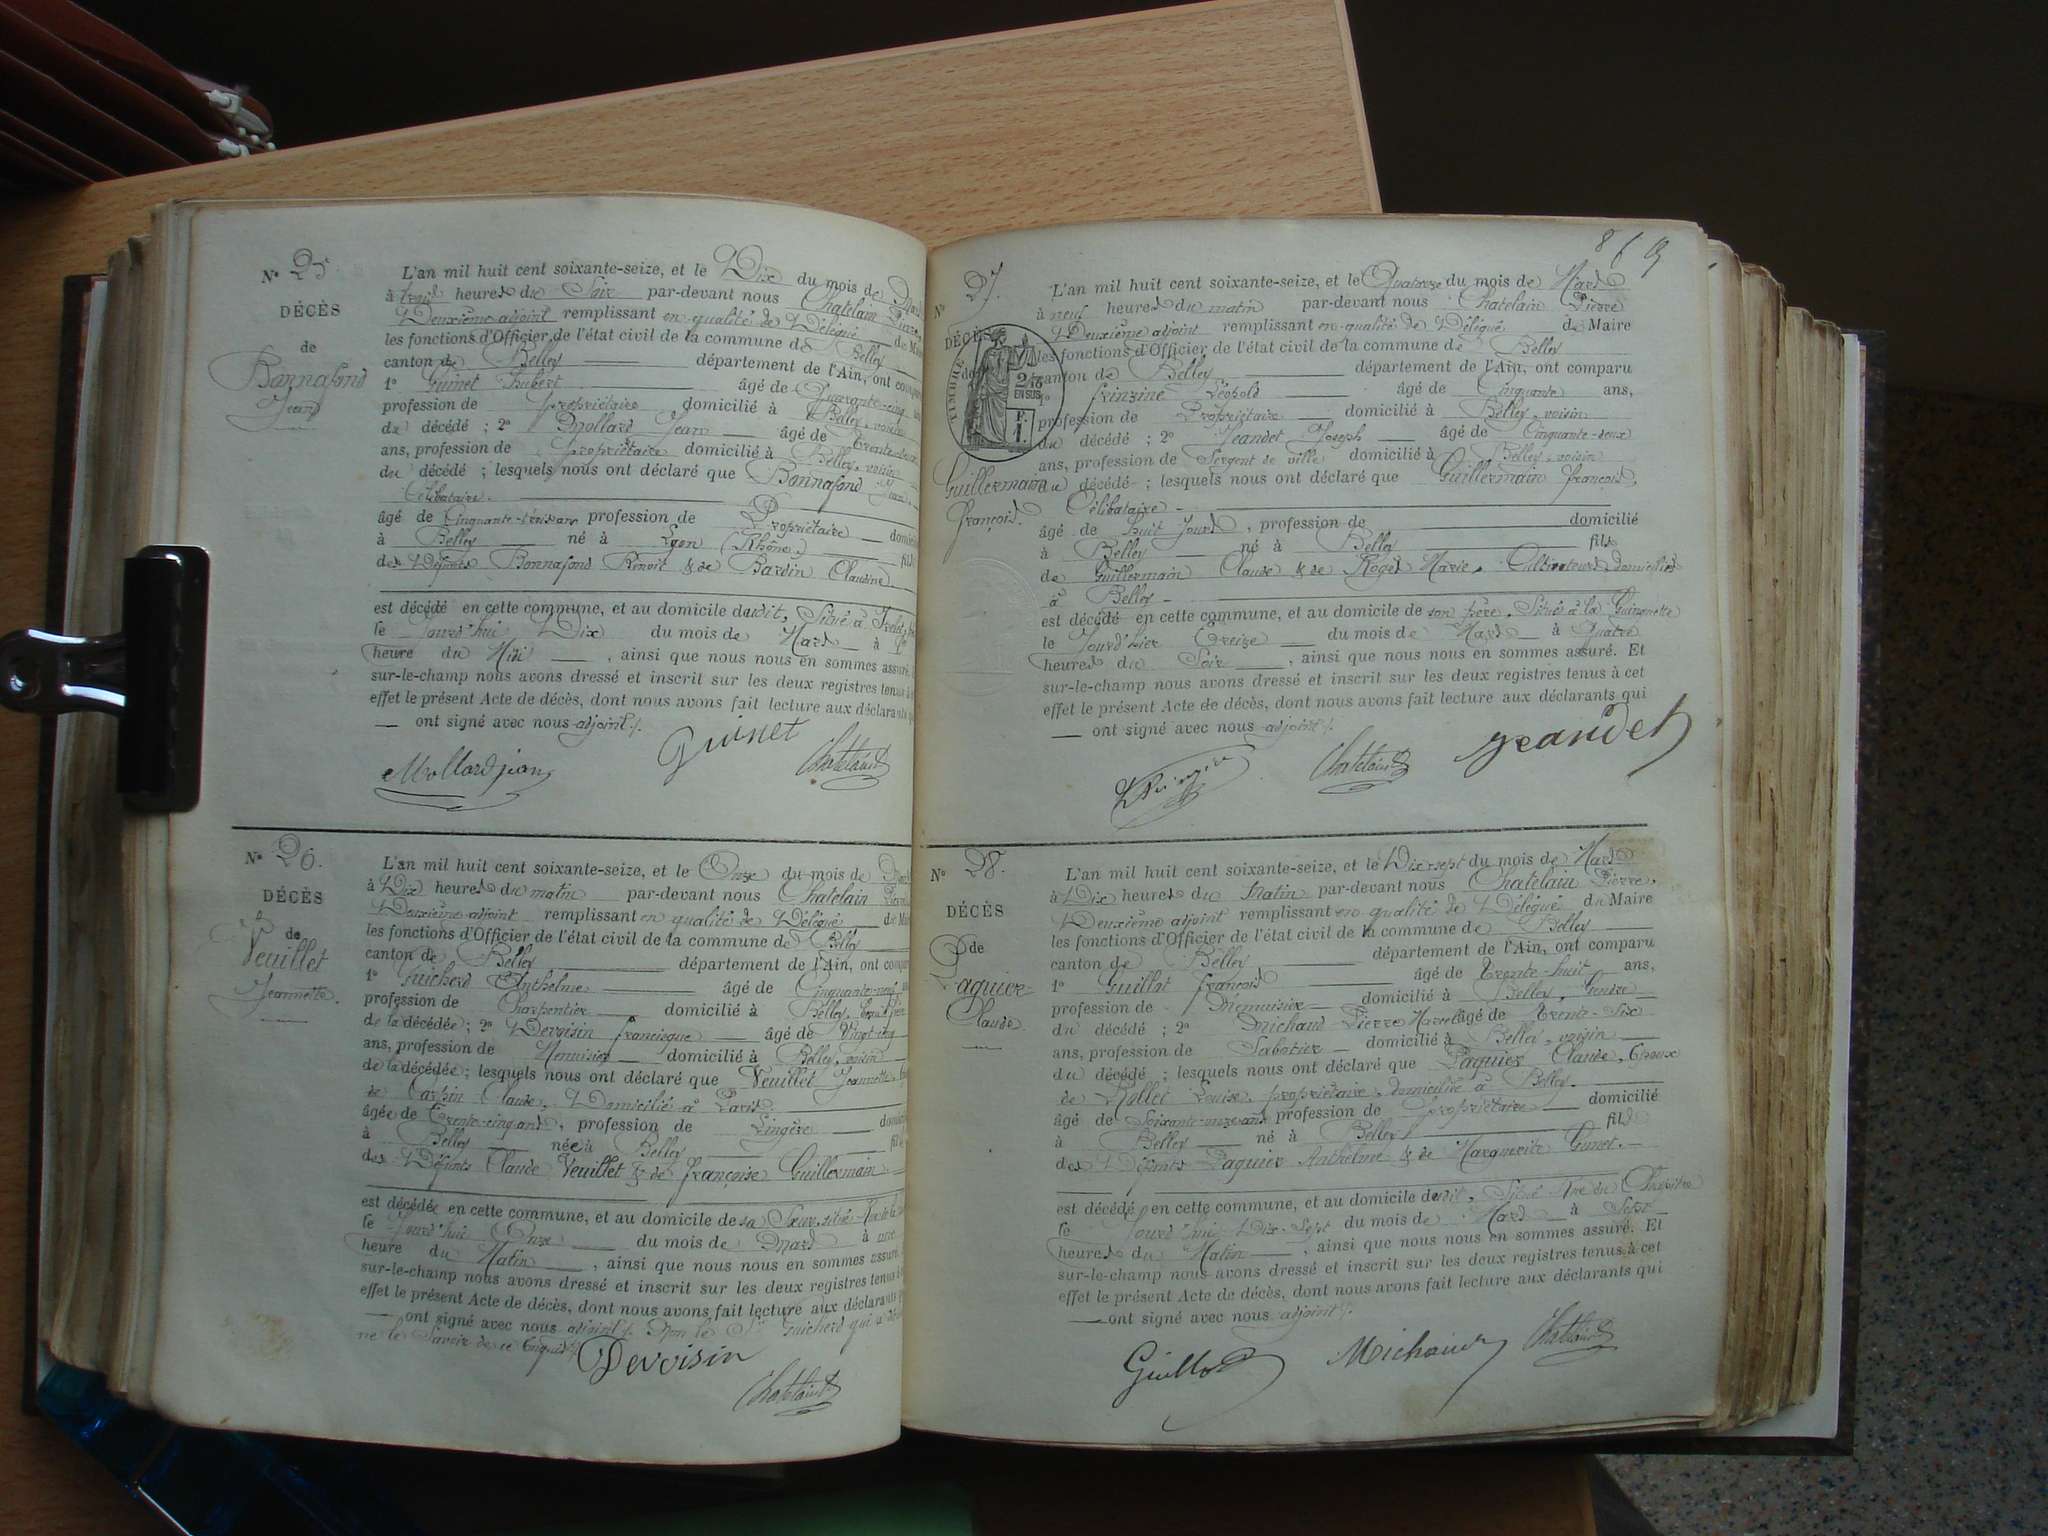 N° 25.
DÉCÈS
de
Bonnafond
Jean
L'an mil huit cent soixante-seize, et le Dix du mois de
à trois heures du Soir par-devant nous Chatelain
Deuxième adjoint remplissant en qualité de Délégué de Maire
les fonctions d'Officier de l'état civil de la commune de Belley
canton de Belley département de l'Ain, ont
1° Guinet Hubert âgé de Quarante-cinq
profession de propriétaire domicilié à Belley, voisin
du décédé ; 2° Mollard Jean âgé de
ans, profession de propriétaire domicilié à Belley, voisin
du décédé ; lesquels nous ont déclaré que Bonnafond Jean
Célibataire.
âgé de profession de Propriétaire
à Belley né à Lyon (Rhône) fils
des Défunts Bonnafond Benoit & de Bardin Claudine
est décédé en cette commune, et au domicile dudit, Situé à
le Jourd'hui Dix du mois de Mars à
heure du Midi , ainsi que nous nous en sommes assuré.
sur-le-champ nous avons dressé et inscrit sur les deux registres tenus à
effet le présent Acte de décès, dont nous avons fait lecture aux déclarants
— ont signé avec nous adjoint /.
Mollard jean Guinet Chatelain
N° 26.
DÉCÈS
de
Veuillet
Jeannette.
L'an mil huit cent soixante-seize, et le Onze du mois de
à Dix heures du matin par-devant nous Chatelain
Deuxième adjoint remplissant en qualité de Délégué du
les fonctions d'Officier de l'état civil de la commune de Belley
canton de Belley département de l'Ain, ont
1° Guicherd Anthelme âgé de Cinquante-neuf
profession de Charpentier domicilié à Belley,
de la décédée ; 2° Devoisin francisque âgé de Vingt-cinq
ans, profession de Menuisier domicilié à Belley, voisin
de la décédée ; lesquels nous ont déclaré que Veuillet Jeannette,
de Claude, Domicilié à Paris.
âgée de Trente-cinq ans, profession de Lingère
à Belley née à Belley fille
des Défunts Claude Veuillet & de françoise Guillermain
est décédée en cette commune, et au domicile de sa Sœur, situé
le Jourd'hui Onze du mois de Mars à une
heure du Matin , ainsi que nous nous en sommes assuré.
sur-le-champ nous avons dressé et inscrit sur les deux registres tenus
effet le présent Acte de décès, dont nous avons fait lecture aux déclarants
— ont signé avec nous adjoint /. Non le Sr Guicherd qui a
ne le Savoir de ce Enquis /.
Devoisin
Chatelain
8
N° 27.
DÉCÈS
de
TIMBRE
EN SUS
Guillermain
françois.
L'an mil huit cent soixante-seize, et le Quatorze du mois de Mars
à neuf heures du matin par-devant nous Chatelain Pierre
Deuxième adjoint remplissant en qualité de Délégué de Maire
les fonctions d'Officier de l'état civil de la commune de Belley
canton de Belley département de l'Ain, ont comparu
1° Léopold âgé de Cinquante ans,
profession de Propriétaire domicilié à Belley, voisin
du décédé ; 2° Jeandet Joseph âgé de Cinquante-deux
ans, profession de Sergent de ville domicilié à Belley, voisin
du décédé ; lesquels nous ont déclaré que Guillermain françois,
Célibataire
âgé de huit Jours, profession de domicilié
à Belley né à Belley fils
de Guillermain Claude & de Roger Marie, Cultivateurs, domiciliés
à Belley
est décédé en cette commune, et au domicile de son père, Situé à la Guinguette
le Jourd'hier Treize du mois de Mars à Quatre
heures du Soir , ainsi que nous nous en sommes assuré. Et
sur-le-champ nous avons dressé et inscrit sur les deux registres tenus à cet
effet le présent Acte de décès, dont nous avons fait lecture aux déclarants qui
— ont signé avec nous adjoint /.
Chatelain Jeandet
N° 28.
DÉCÈS
de
Paquier
Claude.
L'an mil huit cent soixante-seize, et le Dix-sept du mois de Mars
à Dix heures du Matin par-devant nous Chatelain Pierre,
Deuxième adjoint remplissant en qualité de Délégué du Maire
les fonctions d'Officier de l'état civil de la commune de Belley
canton de Belley département de l'Ain, ont comparu
1° Guillot françois âgé de Trente-huit ans,
profession de Menuisier domicilié à Belley, Gendre
du décédé ; 2° Michaud Pierre Marcel âgé de Trente-Six
ans, profession de Sabotier domicilié à Belley, voisin
du décédé ; lesquels nous ont déclaré que Paquier Claude, Epoux
de Rollet Louise, propriétaire, domicilié à Belley.
âgé de Soixante-onze ans profession de propriétaire domicilié
à Belley né à Belley fils
des Défunts Paquier Anthelme & de Marguerite Guinet.
est décédé en cette commune, et au domicile dudit, Situé Rue du Chapitre
le Jourd'hui Dix-Sept du mois de Mars à Sept
heures du Matin , ainsi que nous nous en sommes assuré. Et
sur-le-champ nous avons dressé et inscrit sur les deux registres tenus à cet
effet le présent Acte de décès, dont nous avons fait lecture aux déclarants qui
— ont signé avec nous adjoint /.
Guillot Michaud Chatelain